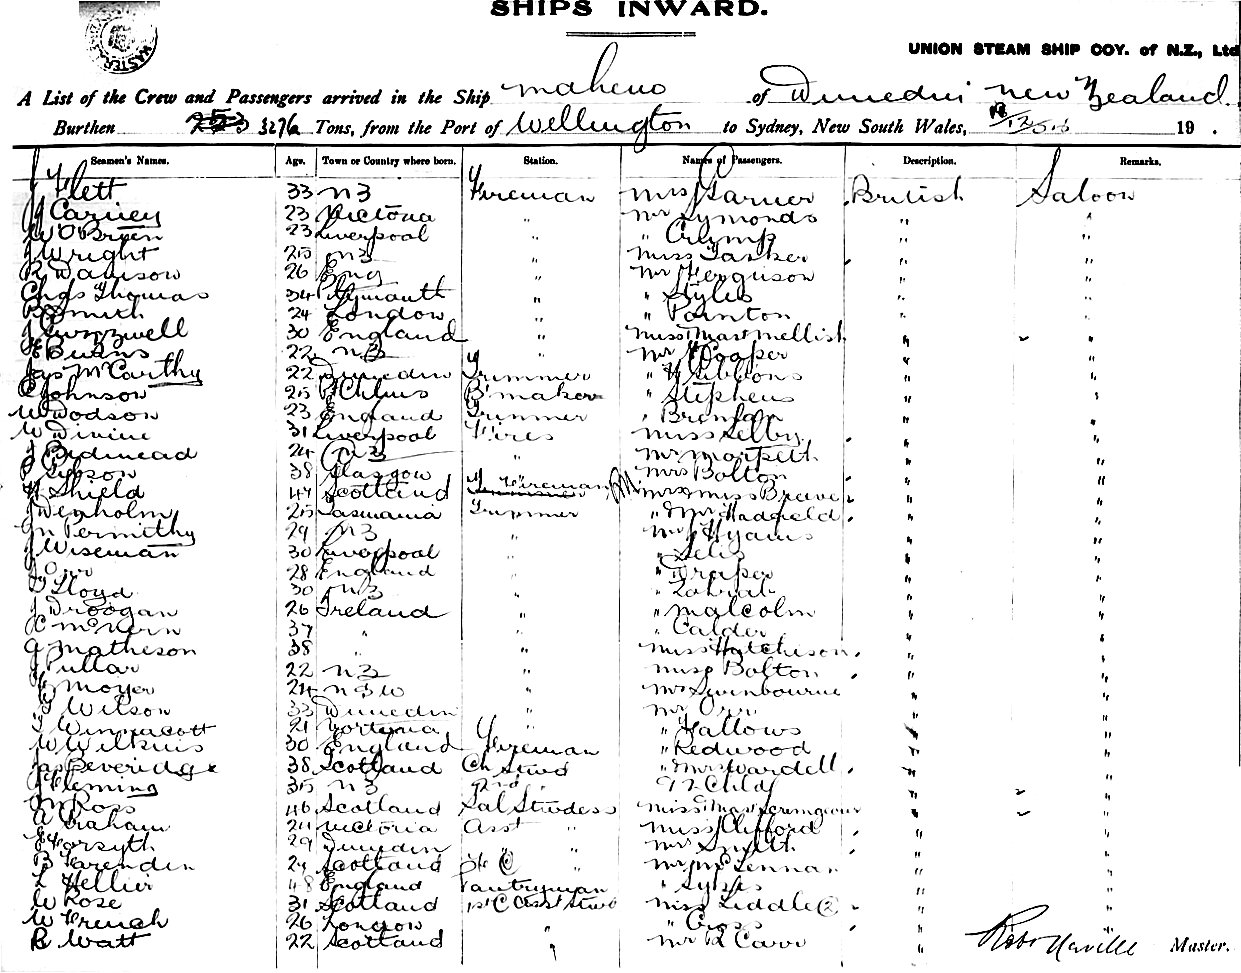 SHIPS INWARD.
UNION STEAM SHIP COY. of N.Z., Ltd
A List of the Crew and Passengers arrived in the Ship Maheno of Dunedin New Zealand
Burthen 3276 Tons, from the Port of Wellington to Sydney, New South Wales, 19 .
Seamen's Names. Age. Town or Country where born. Station. Names of Passengers. Description. Remarks.
Flett 33 NZ Fireman Mrs Garner British Saloon
J Carney 23 Victoria " Mr Symonds " "
W O'Brien 23 Liverpool " " Crump " "
J Wright 25 NZ " Miss Tasker " "
R Davison 26 Eng " Mr Ferguson " "
Chas Thomas 34 Plymouth " " Styles " "
Smith 24 London " " Pointon " "
30 England " Miss Mast Mellish " "
Burns 22 NZ " Mr Cooper " "
Jas McCarthy 22 Dunedin Trimmer " Gibbons " "
C Johnson 25 B'maker " Stephens " "
W Woodson 23 England Trimmer " " "
W Divine 31 Liverpool Fires " Miss Selby " "
J Bidmead 24 NZ " Mr Morpeth " "
Gibson 38 Glasgow " Mrs Bolton " "
Shield 47 Scotland Fireman Mrs Miss " "
J Denholm 25 Tasmania Trimmer " Mr Hadfield " "
Permithy 29 NZ " Mr Hyams " "
J Wiseman 30 Liverpool " " " "
J Orr 28 England " " Draper " "
Lloyd 30 NZ " " " "
J Droogan 26 Ireland " " Malcolm " "
37 " " " Calder " "
Matheson 38 " " Miss Hutchison " "
J Pullar 22 NZ " Miss Bolton " "
Moyer 24 NSW " Mrs Swinbourne " "
Wilson 33 Dunedin " Mr Orr " "
Winnacott 21 Victoria " " Hallows " "
W Wilkins 30 England Fireman " Redwood " "
Jas Beveridge 38 Scotland Ch Stwd " Mrs Wardell " "
J Fleming 35 NZ 2nd " Child " "
M Ross 46 Scotland Sal Stwdess Miss Mast Scrimgeour "
A Graham 24 Victoria Asst " Miss Clifford " "
Forsyth 29 Dunedin " Mr " "
B Farenden 24 Scotland Mr McLennan " "
L Hellier 48 England Pantryman " Sykes " "
W Rose 31 Scotland 1st C Asst Stwd Miss Liddle (2) " "
W French 26 London " " Cross " "
R Watt 22 Scotland " Mr R Carr " "
Robt Neville Master.